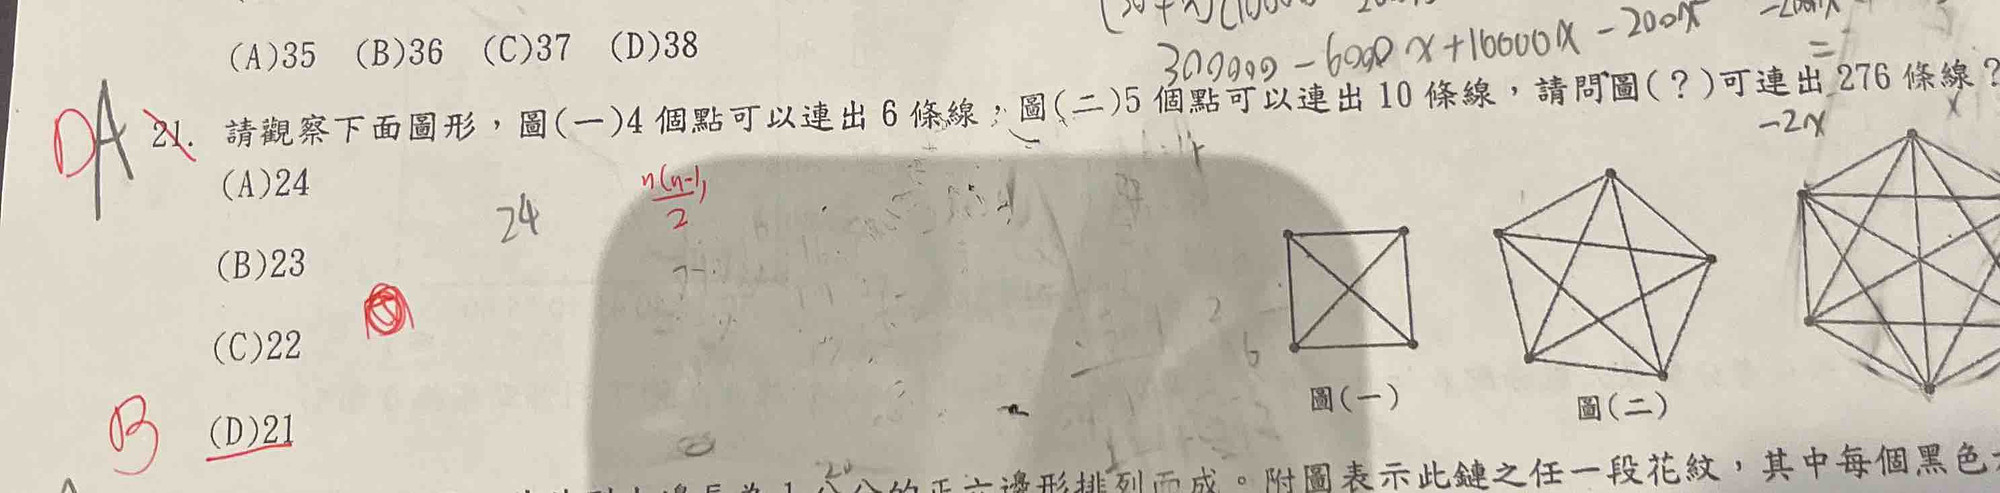 (A)35 (B)36 (C)37 (D)38
300000-6000x+10000x-200x
=
DA 21. 請觀察下面圖形，圖(一)4個點可以連出6條線；圖(二)5個點可以連出10條線，請問圖(?)可連出276條線?
-2x
x
(A)24
24
n(n-1)
2
(B)23
(C)22
B (D)21
圖(一)
圖(二)
公分的正六邊形排列而成。附圖表示此鏈之任一段花紋，其中每個黑色